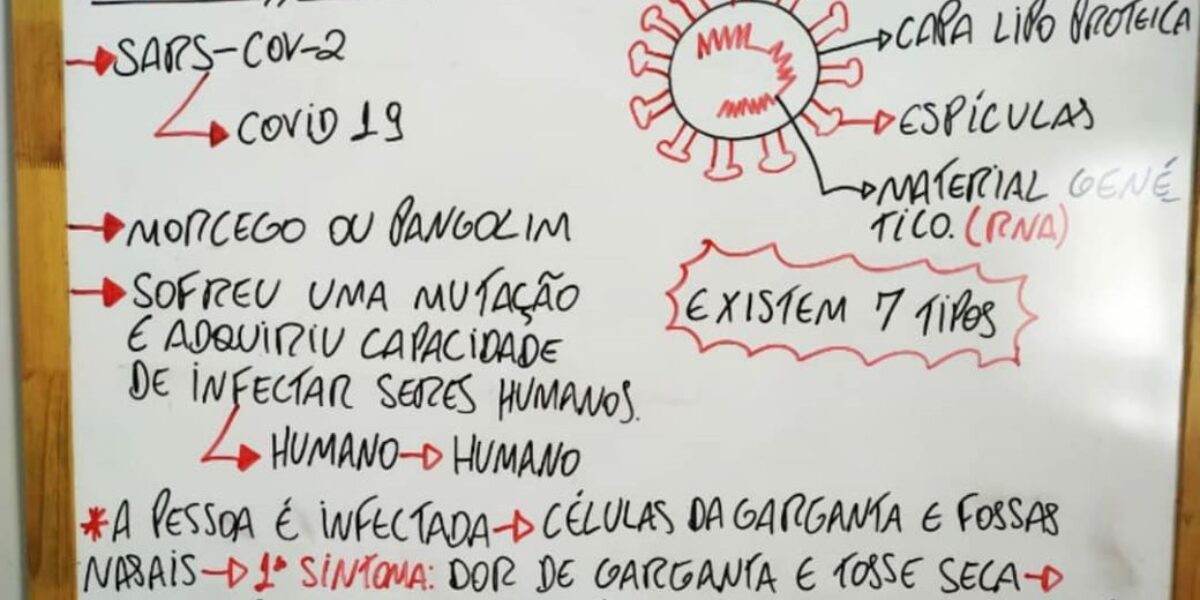 SARS-COV-2
COVID 19
CAPA LIPO PROTEICA
ESPÍCULAS
MATERIAL GENÉ
TICO. (RNA)
MORCEGO OU PANGOLIM
SOFREU UMA MUTAÇÃO
E ADQUIRIU CAPACIDADE
DE INFECTAR SERES HUMANOS.
HUMANO → HUMANO
EXISTEM 7 TIPOS
*A PESSOA É INFECTADA → CÉLULAS DA GARGANTA E FOSSAS
NASAIS → 1º SINTOMA: DOR DE GARGANTA E TOSSE SECA →